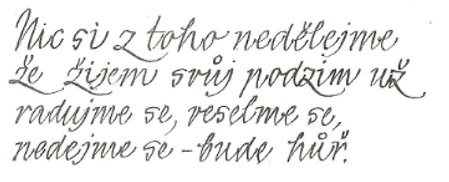 Nic si z toho nedělejme
že žijem svůj podzim už
radujme se, veselme se,
nedejme se - bude hůř.